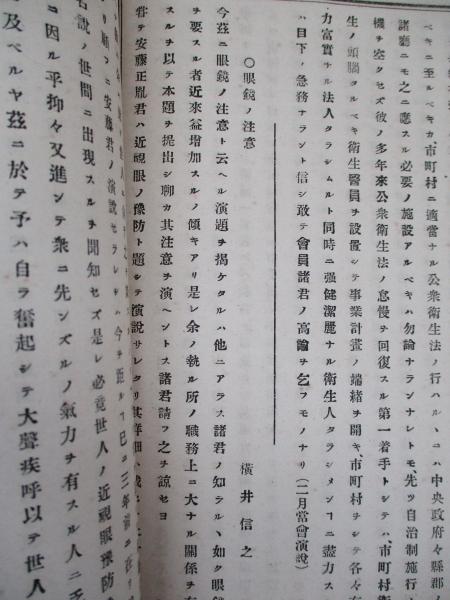 ベキニ至ルベキカ、市町村ニ適當ナル公衆衛生法ノ行ハルヽニハ中央政府々縣郡
諸廳ニモ之ニ應スル必要ノ施設アルベキハ勿論ナランナレトモ、先ツ自治制施行
機チ空クセズ彼ノ多年來公衆衛生法ノ怠慢チ回復スル第一着手トシテハ市町村衛
生ノ頭腦タルベキ衛生醫員チ設置シテ事業計畫ノ端緒チ開キ、市町村チシテ各々有
力富實ナル法人タラシムルト同時ニ强健潔麗ナル衛生人タラシメンヿニ盡力ス
ハ目下ノ急務ナラント信シ敢テ會員諸君ノ高論チ乞フモノナリ(二月常會演說)
○眼鏡ノ注意
橫井信之
今茲ニ眼鏡ノ注意ト云ヘル演題チ揭ケタルハ他ニアラス諸君ノ知ラルヽ如ク眼鏡
チ要スル者近來益增加スルノ傾キアリ是レ余ノ執ル所ノ職務上ニ大ナル關係チ有
スルチ以テ本題チ提出シ聊カ其注意チ演ヘントス諸君請フ之チ諒セヨ
甞テ安藤正胤君ハ近視眼ノ豫防ト題シテ演說サレタリ其詳細ハ
リ顧フニ安藤君ノ演說セラレシハ今チ距ルヿ已ニ三年前ニ在リ
名說ノ世間ニ出現スルチ聞知セズ是レ必竟世人ノ近視眼豫防
ニ因ル乎抑々又進シテ衆ニ先ンズルノ氣力チ有スル人ニ乏
及ベルヤ茲ニ於テ予ハ自ラ奮起シテ大聲疾呼以テ世人